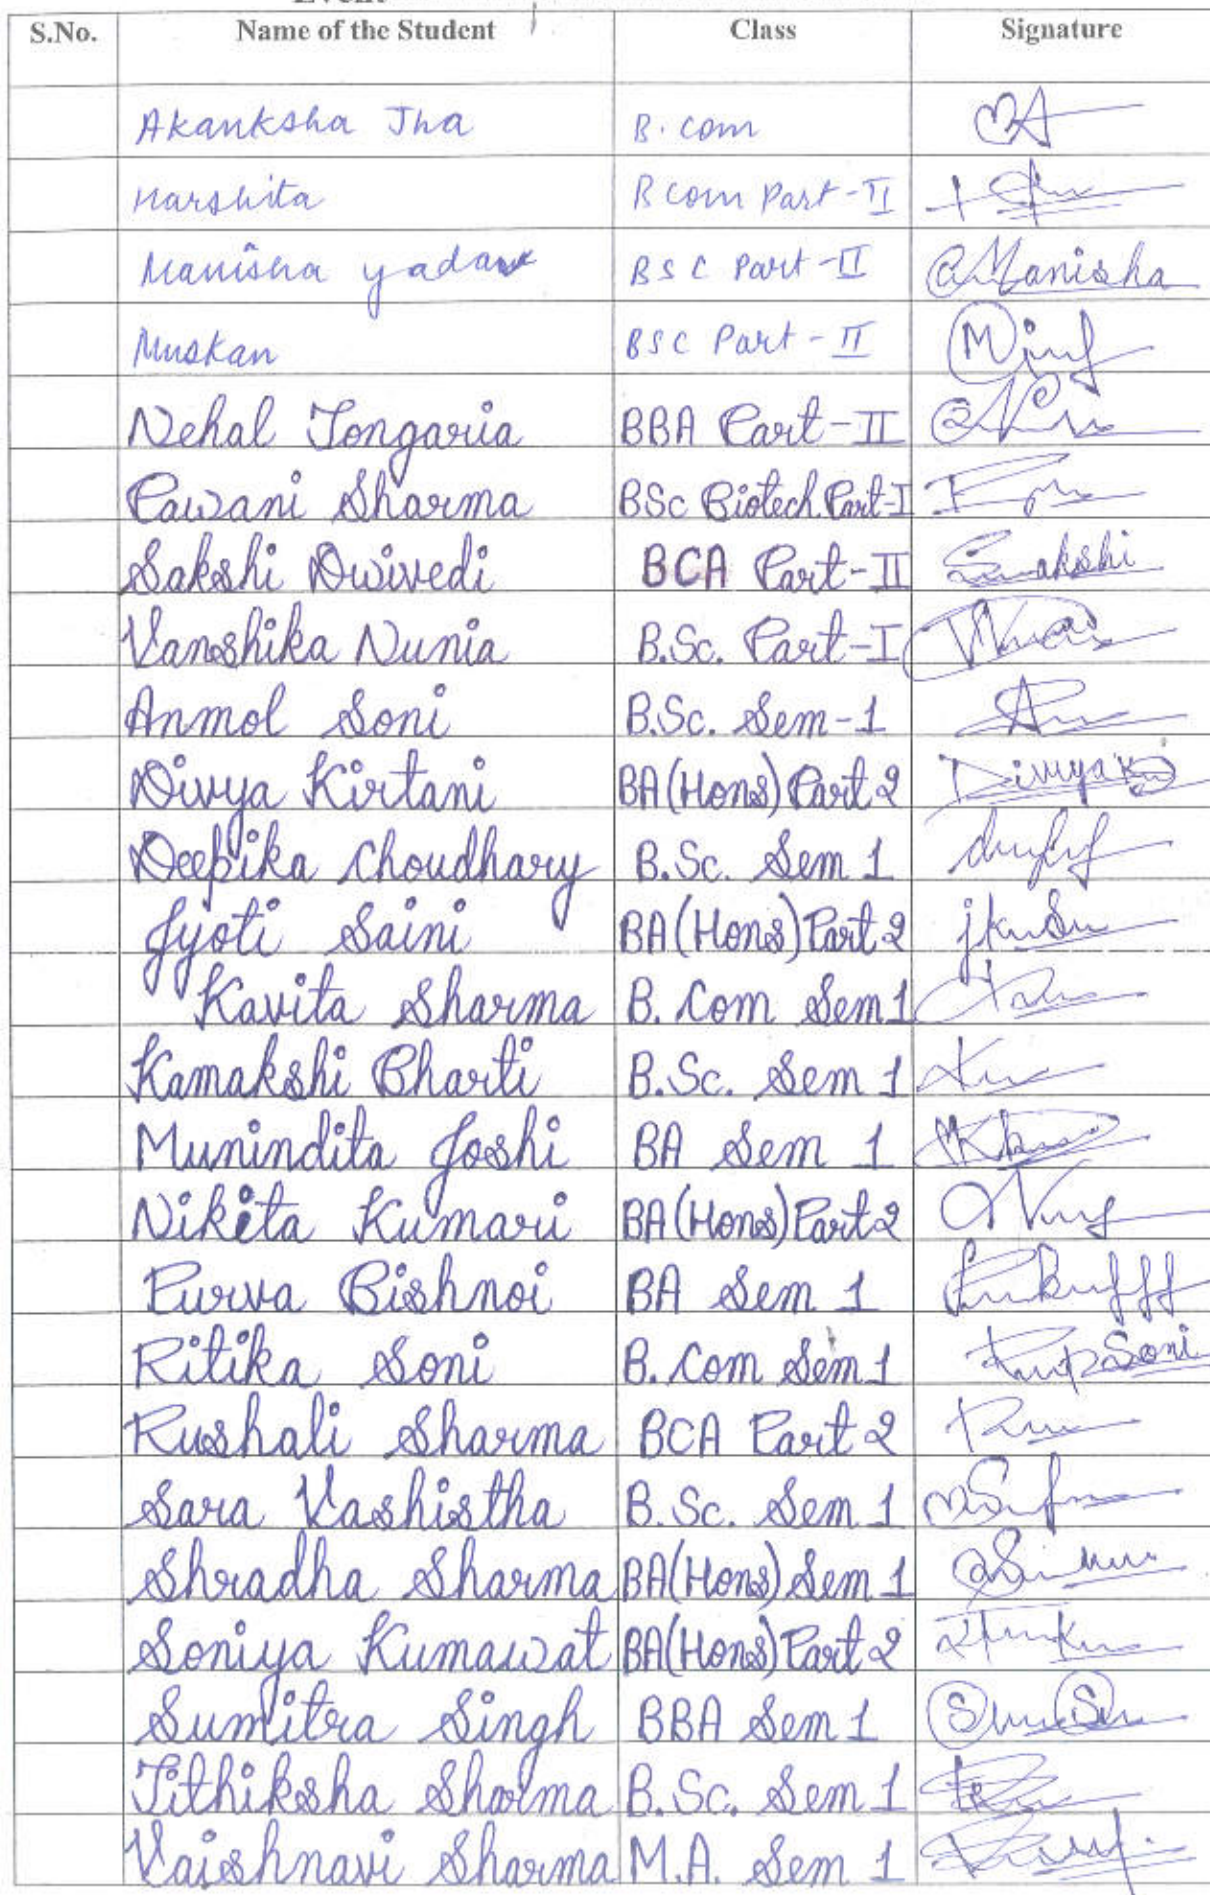 Event
S.No. Name of the Student Class Signature
Akanksha Jha B.com
Harshita B com Part-II
Manisha yadav BSC Part-II Manisha
Muskan BSC Part-II
Nehal Tongaria BBA Part-II
Pawani Sharma BSc Biotech. Part-I
Sakshi Dwivedi BCA Part-II
Vanshika Nunia B.Sc. Part-I
Anmol Soni B.Sc. Sem-1
Divya Kirtani BA(Hons) Part 2
Deepika Choudhary B.Sc. Sem 1
Jyoti Saini BA(Hons) Part 2
Kavita Sharma B. Com Sem 1
Kamakshi Bharti B.Sc. Sem 1
Munindita Joshi BA Sem 1
Nikita Kumari BA(Hons) Part 2
Purva Bishnoi BA Sem 1
Ritika Soni B. Com Sem 1 Soni
Rushali Sharma BCA Part 2
Sara Vashistha B.Sc. Sem 1
Shradha Sharma BA(Hons) Sem 1
Soniya Kumawat BA(Hons) Part 2
Sumitra Singh BBA Sem 1
Tithiksha Sharma B.Sc. Sem 1
Vaishnavi Sharma M.A. Sem 1